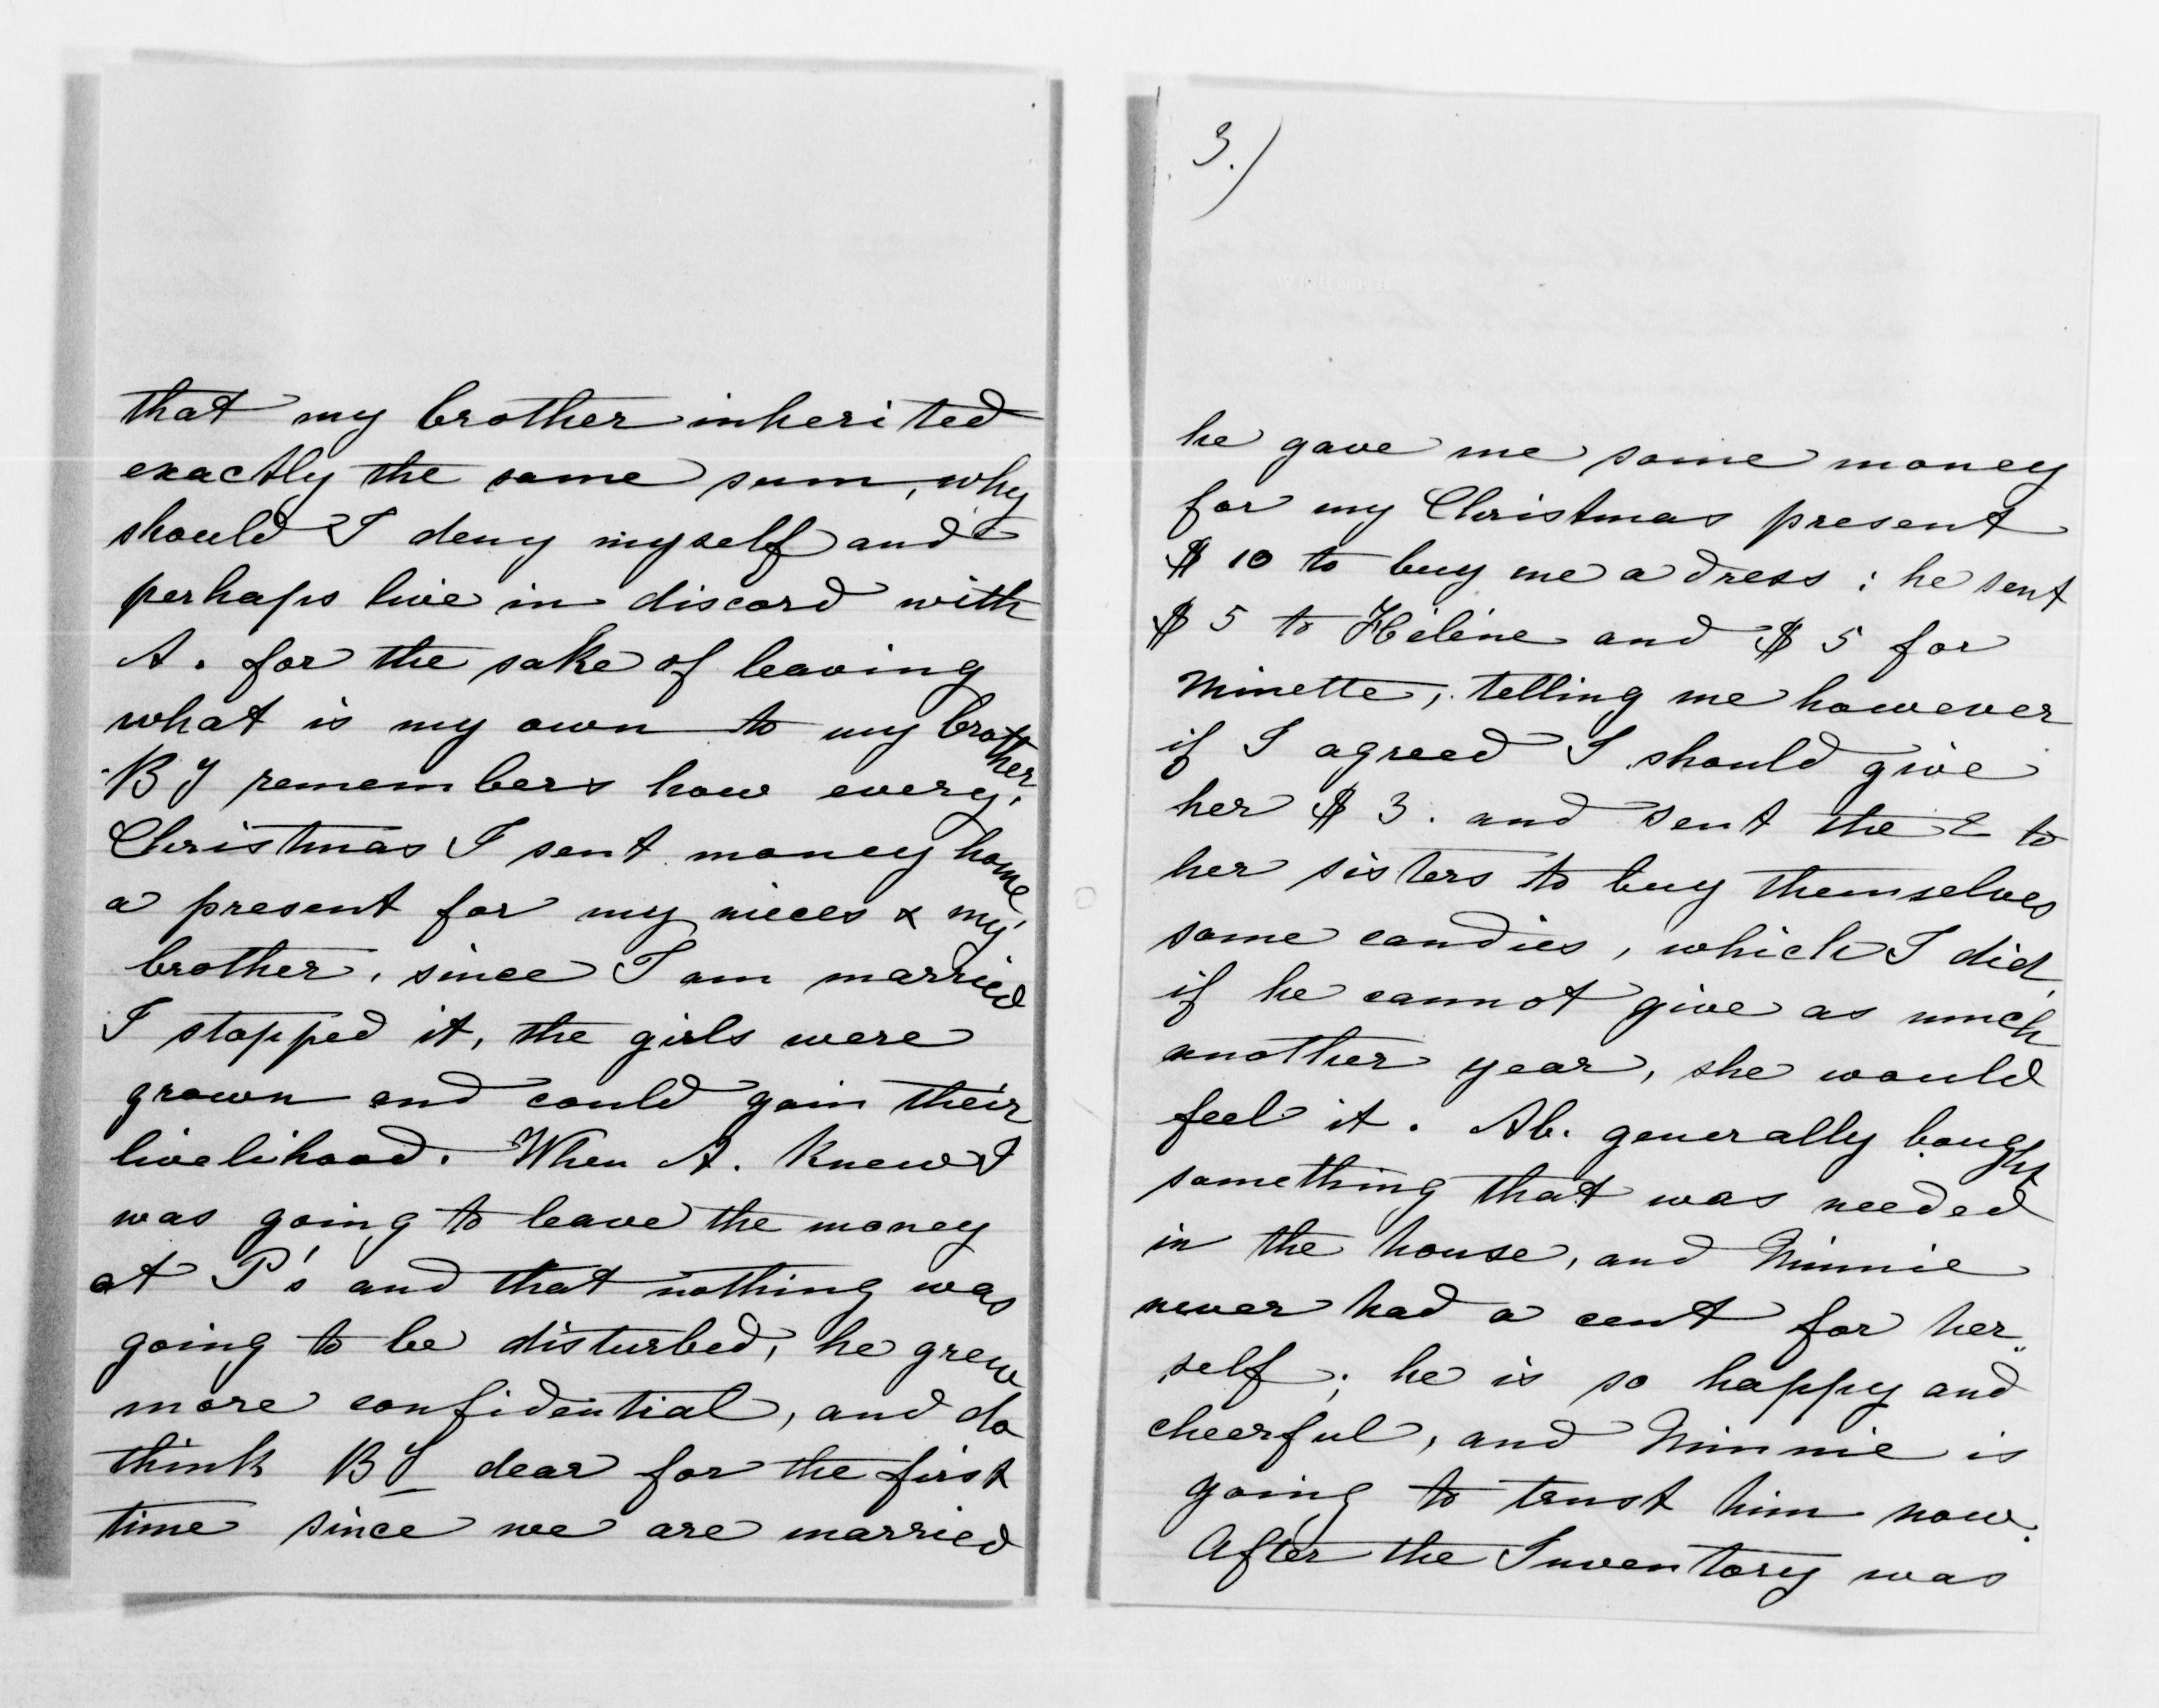 that my brother inherited
exactly the same sum, why
should I deny myself and
perhaps live in discord with
A. for the sake of leaving
what is my own to my brother.
BJ remembers how every
Christmas I sent money home
a present for my nieces & my
brother, since I am married
I stopped it, the girls were
grown and could gain their
livelihood. When A. knew I
was going to leave the money
at P's and that nothing was
going to be disturbed, he grew
more confidential, and do
think BJ dear for the first
time since we are married
3.)
he gave me some money
for my Christmas present
$ 10 to buy me a dress : he sent
$ 5 to Hélène and $ 5 for
Minette, telling me however
if I agreed I should give
her $ 3. and sent the 2 to
her sisters to buy themselves
some candies, which I did,
if he cannot give as much
another year, she would
feel it. Ab. generally bought
something that was needed
in the house, and Minnie
never had a cent for her
self; he is so happy and
cheerful, and Minnie is
going to trust him now.
After the Inventory was